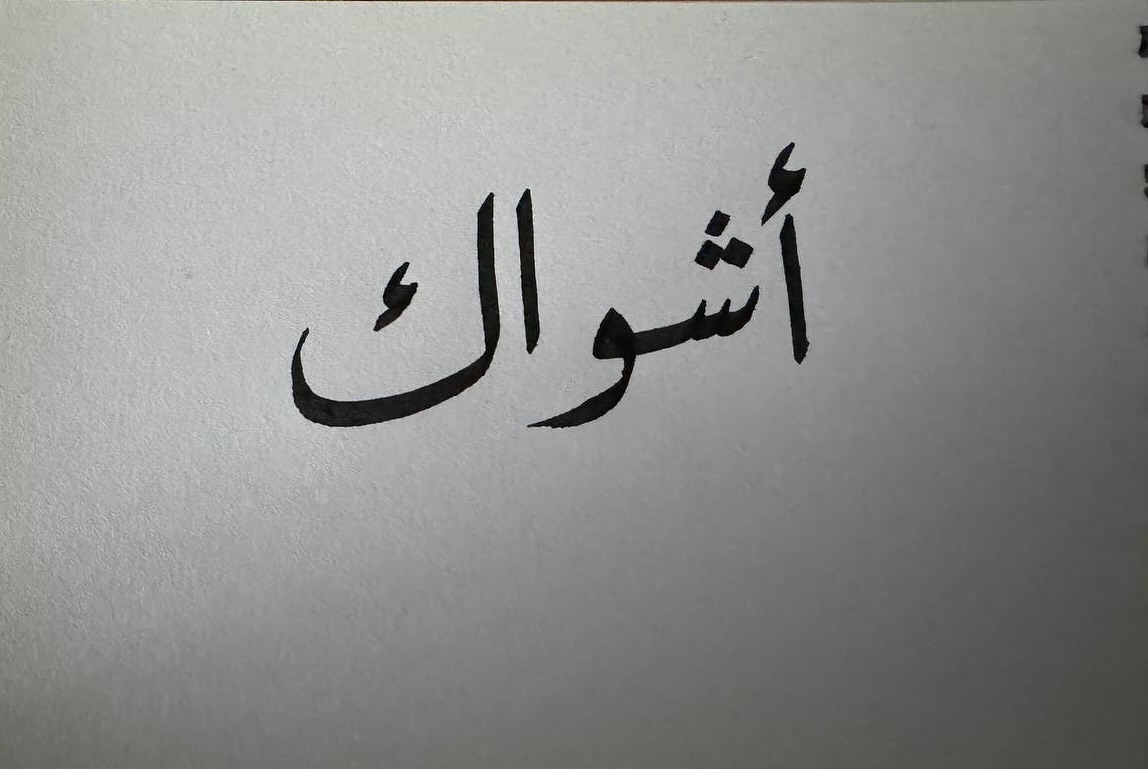 أشواك